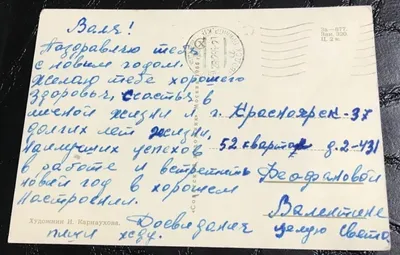 Валя!
Поздравляю тебя
с новым годом.
Желаю тебе хорошего
здоровья, счастья в
личной жизни и
долгих лет жизни,
Наилучших успехов
в работе и встретить
новый год в хорошем
Настроении.
Досвидания
Художник Н. Карпаухова.
г. Красноярск-37
52 квартал д. 2-431
Феофановой
Валентине
целую Света